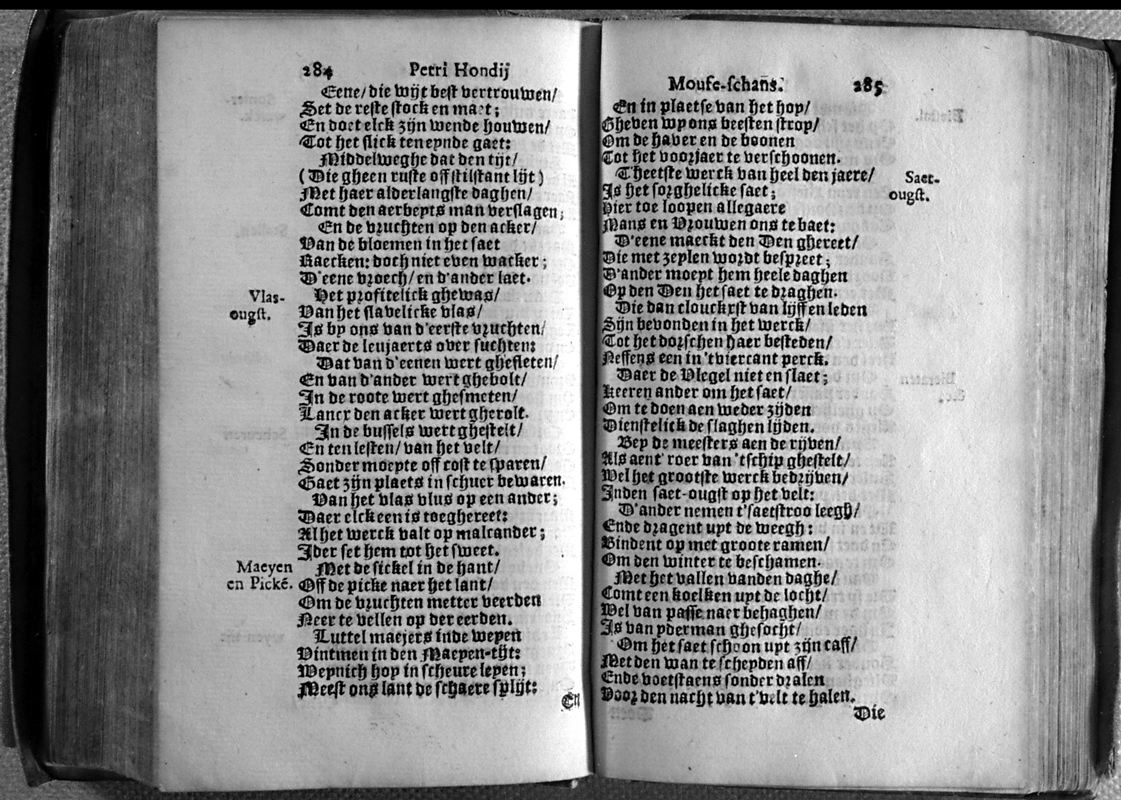 284 Petri Hondij
Eene/ die wijt best vertrouwen/
Set de reste stock en maet;
En doet elck zijn wende houwen/
Tot het stick ten eynde gaet:
Middelweghe dat den tijt/
(Die gheen ruste off stilstant lijt)
Met haer alderlangste daghen/
Comt den aerbeyts man verslagen;
En de vruchten op den acker/
Van de bloemen in het saet
Raecken: doch niet even wacker;
D'eene vroech/ en d'ander laet.
Vlas-
ougst.
Het profitelick ghewas/
Van het slavelicke vlas/
Is by ons van d'eerste vruchten/
Daer de leujaerts over suchten:
Dat van d'eenen wert ghesleten/
En van d'ander wert ghebolt/
In de roote wert ghesmeten/
Lancx den acker wert gherolt.
In de bussels wert ghestelt/
En ten lesten/ van het velt/
Sonder moeyte off cost te sparen/
Gaet zijn plaets in schuer bewaren.
Van het vlas vlus op een ander;
Daer elck een is toeghereet:
Al het werck valt op malcander;
Ider set hem tot het sweet.
Maeyen
en Pickē.
Met de sickel in de hant/
Off de picke naer het lant/
Om de vruchten metter veerden
Neer te vellen op der eerden.
Luttel maejers inde weyen
Vintmen in den Maeyen-tijt:
Weynich hop in scheure leyen;
Meest ons lant de schaere splijt:
En
Mouse-schans. 285
En in plaetse van het hop/
Gheven wy ons beesten strop/
Om de haver en de boonen
Tot het voorjaer te verschoonen.
Saet-
ougst.
T'heetste werck van heel den jaere/
Is het sorghelicke saet;
Hier toe loopen allegaere
Mans en Vrouwen ons te baet:
D'eene maeckt den Den ghereet/
Die met zeylen wordt bespreet;
D'ander moeyt hem heele daghen
Op den Den het saet te draghen.
Die dan clouckxst van lijff en leden
Sijn bevonden in het werck/
Tot het dorschen haer besteden/
Neffens een in 't viercant perck.
Daer de Vlegel niet en slaet;
Keeren ander om het saet/
Om te doen aen weder zijden
Dienstelick de slaghen lijden.
Bey de meesters aen de rijven/
Als aent' roer van 'tschip ghestelt/
Wel het grootste werck bedrijven/
Inden saet-ougst op het velt:
D'ander nemen t'saetstroo leegh/
Ende dragent uyt de weegh:
Bindent op met groote ramen/
Om den winter te beschamen.
Met het vallen vanden daghe/
Comt een koelken uyt de locht/
Wel van passe naer behaghen/
Is van yderman ghesocht/
Om het saet schoon uyt zijn caff/
Met den wan te scheyden aff/
Ende voetstaens sonder dralen
Voor den nacht van t'velt te halen.
Die